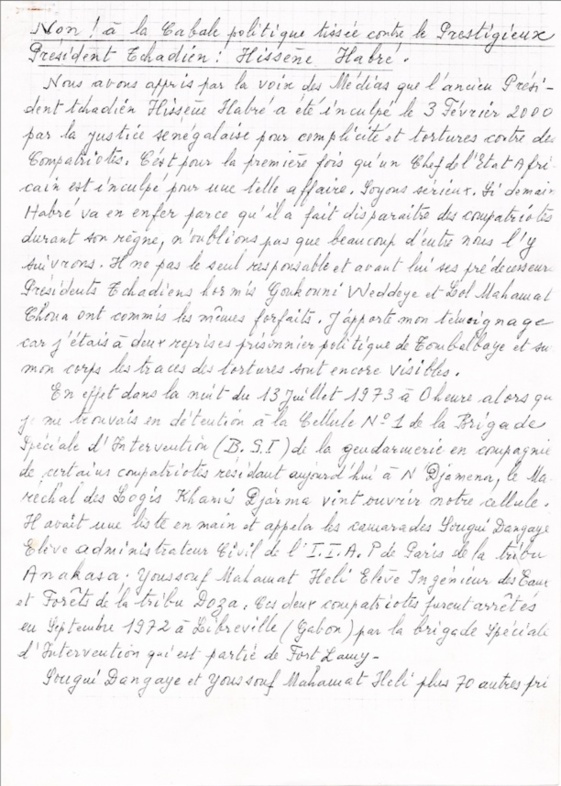 Non ! à la Cabale politique tissée contre le Prestigieux
Président Tchadien : Hissène Habré.
Nous avons appris par la voix des Médias que l'ancien Prési-
dent tchadien Hissène Habré a été inculpé le 3 Février 2000
par la justice sénégalaise pour complicité et tortures contre des
Compatriotes. C'est pour la première fois qu'un Chef de l'Etat Afri-
cain est inculpé pour une telle affaire. Soyons sérieux. Si demain
Habré va en enfer parce qu'il a fait disparaitre des compatriotes
durant son règne, n'oublions pas que beaucoup d'entre nous l'y
suivrons. Il no pas le seul responsable et avant lui ses prédécesseur
Présidents Tchadiens hormis Goukouni Weddeye et Lol Mahamat
Choua ont commis les mêmes forfaits. J'apporte mon témoignage
car j'étais à deux reprises prisonnier politique de Tombalbaye et su
mon corps les traces des tortures sont encore visibles.
En effet dans la nuit du 13 Juillet 1973 à 0 heure alors qu
je me trouvais en détention à la Cellule N° 1 de la Brigade
Spéciale d'Intervention (B.S.I) de la gendarmerie en compagnie
de certains compatriotes residant aujourd'hui à N Djamena, le Ma-
réchal des Logis Khamis Djárma vint ouvrir notre cellule.
Il avait une liste en main et appela les camarades Sougui Dangaye
Elève administrateur Civil de l'I.I.A.P de Paris de la tribu
Anakasa ; Youssouf Mahamat Heli Elève Ingénieur des Eaux
et Forêts de la tribu Doza. Ces deux compatriotes furent arrêtés
en Septembre 1972 à Libreville (Gabon) par la brigade Spéciale
d'Intervention qui est partie de Fort Lamy -
Sougui Dangaye et Youssouf Mahamat Heli plus 70 autres pri